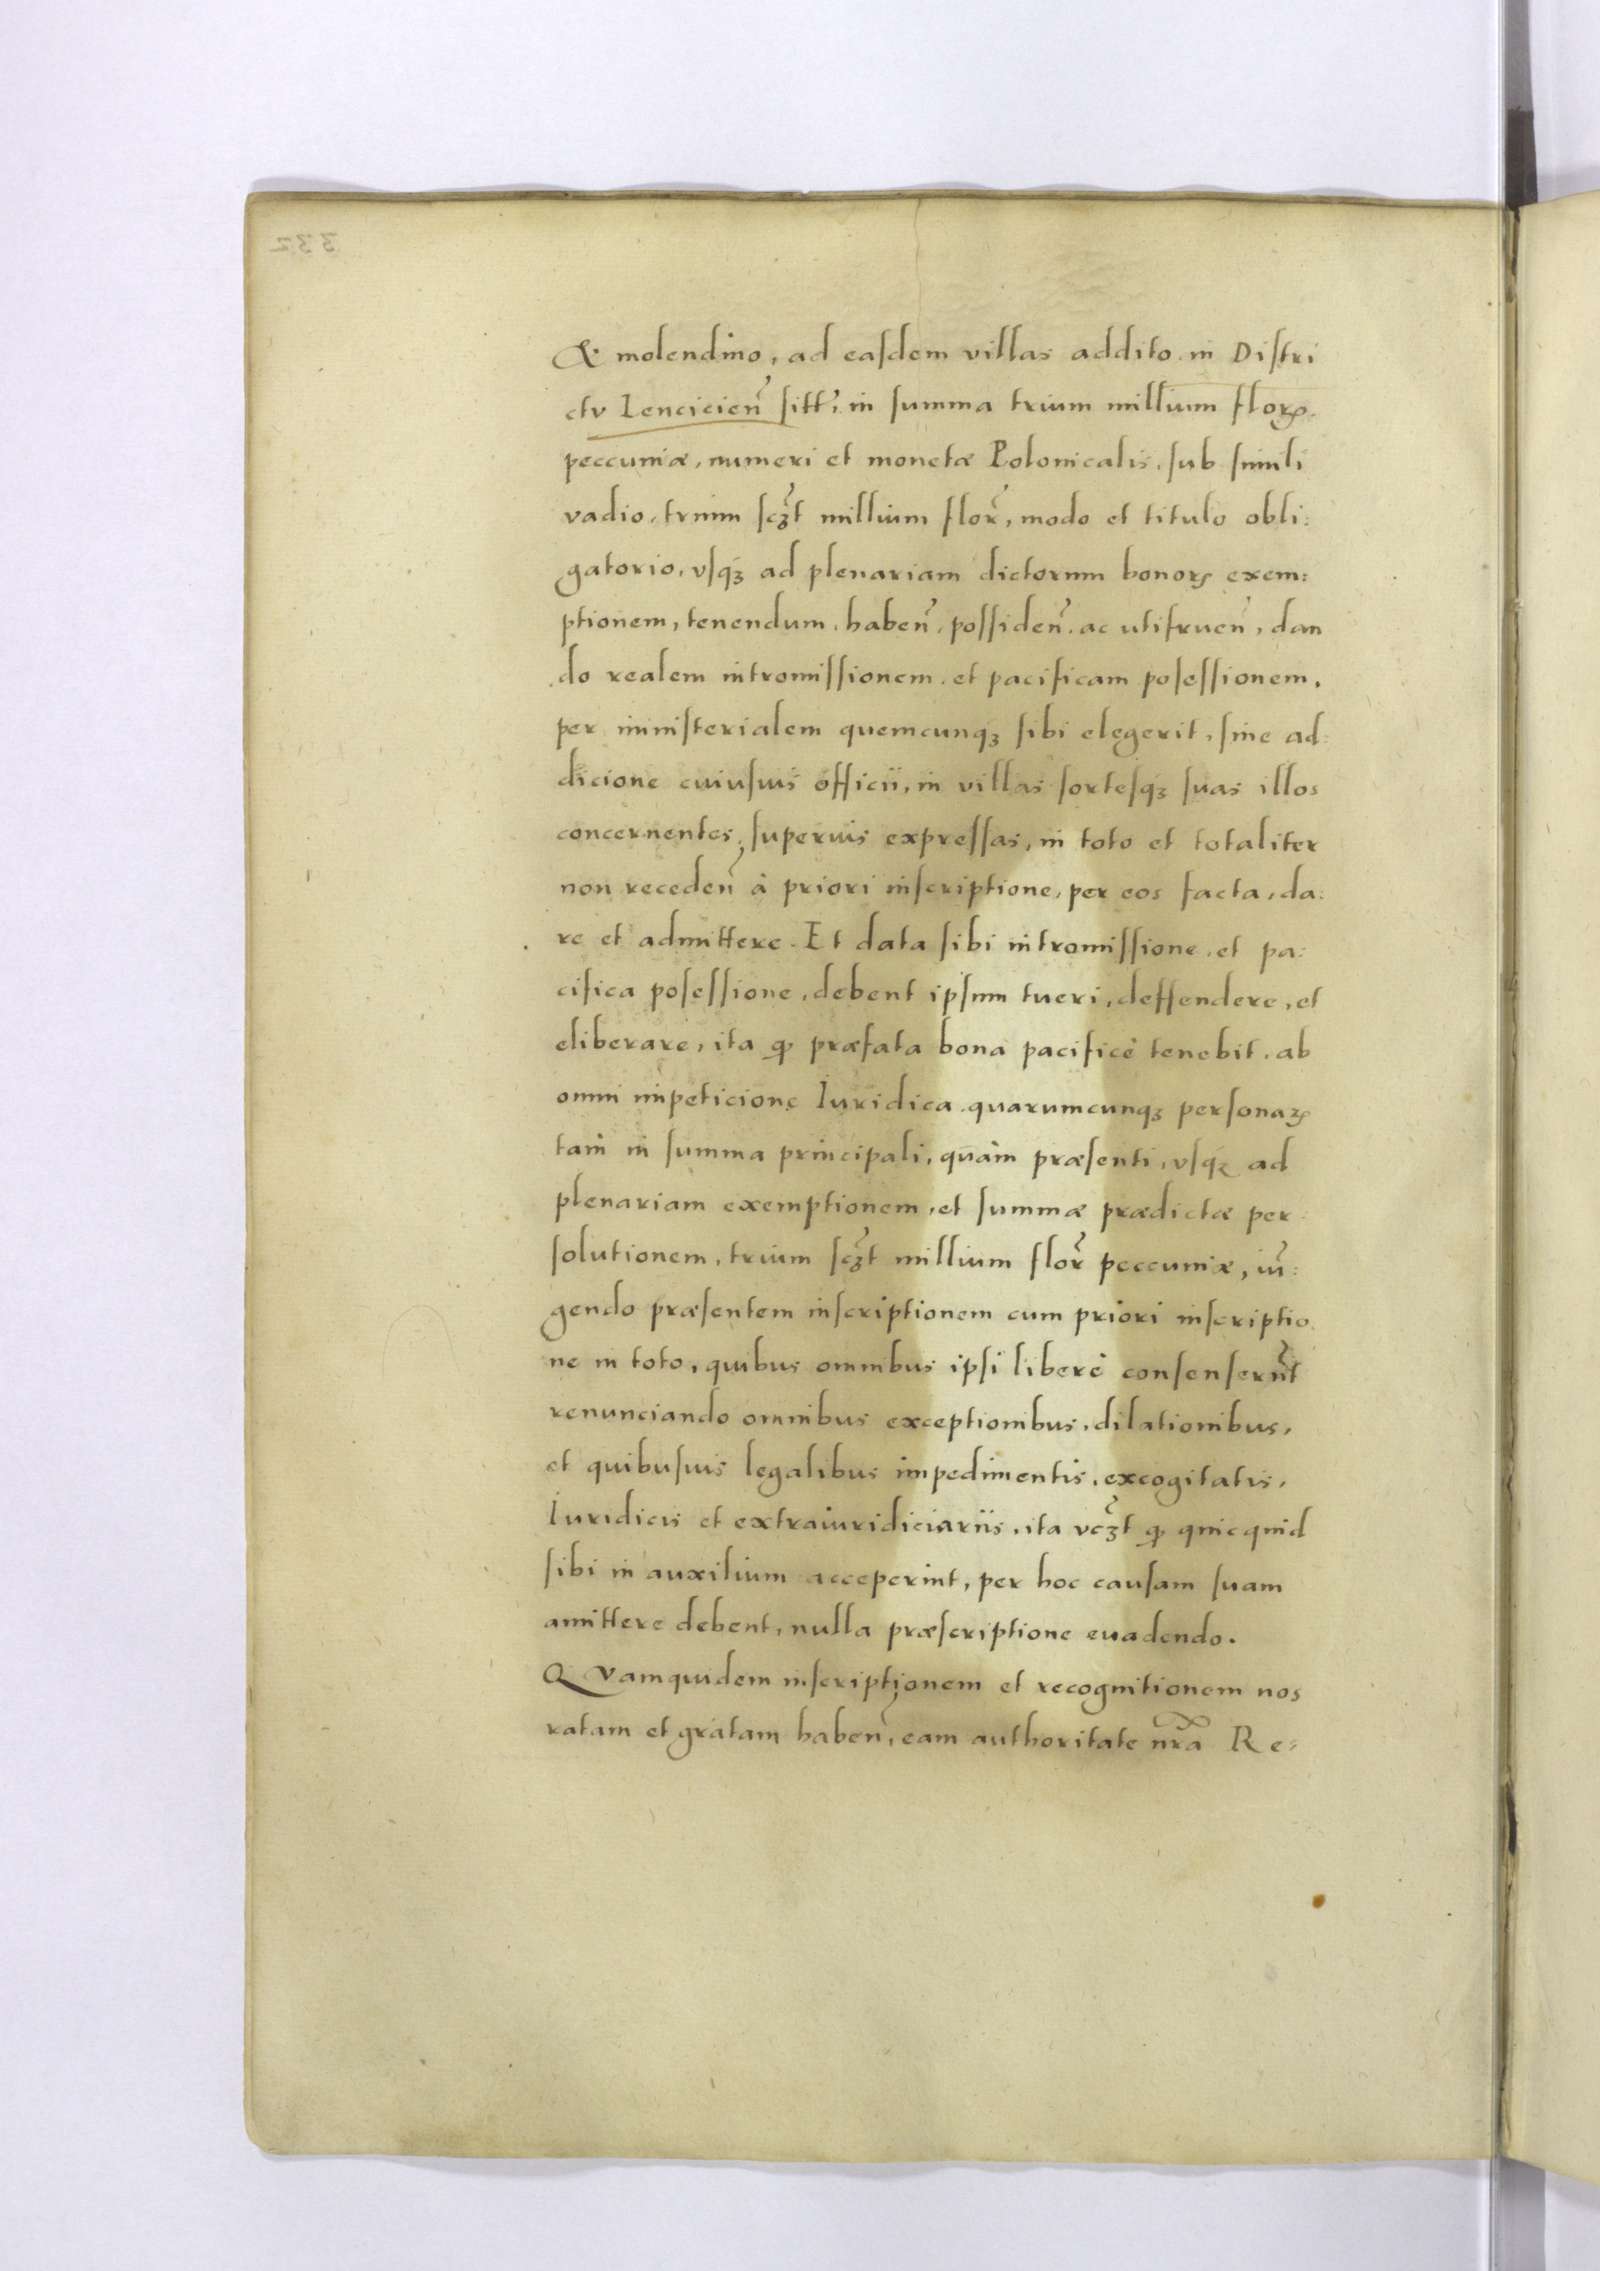 & molendino, ad easdem villas addito in Distri
ctv Lencicieñ sitt, in summa trium millium floꝝ
peccuniæ, numeri et monetæ Polonicalis, sub simili
vadio, trium scꝫt millium flor̃, modo et titulo obli:
gatorio, vsqꝫ ad plenariam dictorum bonoꝝ exem:
ptionem, tenendum, habeñ, possideñ, ac utifrueñ, dan
do realem intromissionem et pacificam posessionem,
per ministerialem quemcunqꝫ sibi elegerit, sine ad:
dicione cuiusuis officii, in villas sortesqꝫ suas illos
concernentes, superius expressas, in toto et totaliter
non recedeñ à priori inscriptione, per eos facta, da:
re et admittere. Et data sibi intromissione, et pa:
cifica posessione, debent ipsum tueri, deffendere, et
eliberare, ita ꝙ præfata bona pacificè tenebit, ab
omni impeticione Iuridica quarumcunqꝫ personaꝝ
tam in summa principali, quàm præsenti, vsqꝫ ad
plenariam exemptionem, et summæ prædictæ per
solutionem, trium scꝫt millium flor̃ peccuniæ, iũ:
gendo præsentem inscriptionem cum priori inscriptio
ne in toto, quibus omnibus ipsi liberè consenserũt
renunciando omnibus exceptionibus, dilationibus,
et quibusuis legalibus impedimentis, excogitatis,
Iuridicis et extraiuridiciariis, ita vcꝫt ꝙ quicquid
sibi in auxilium acceperint, per hoc causam suam
amittere debent, nulla præscriptione euadendo.
Qvamquidem inscriptionem et recognitionem nos
ratam et gratam habeñ, eam authoritate nr̃a Re:
332